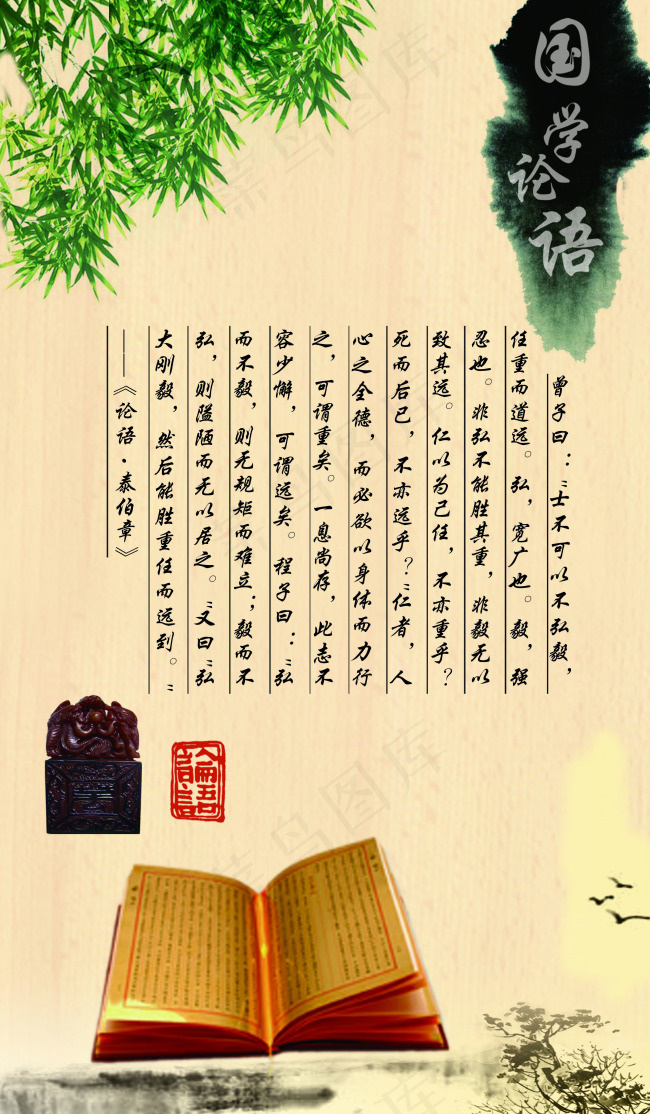 国学论语
曾子曰：“士不可以不弘毅，
任重而道远。弘，宽广也。毅，强
忍也。非弘不能胜其重，非毅无以
致其远。仁以为己任，不亦重乎？
死而后已，不亦远乎？”仁者，人
心之全德，而必欲以身体而力行
之，可谓重矣。一息尚存，此志不
容少懈，可谓远矣。程子曰：“弘
而不毅，则无规矩而难立；毅而不
弘，则隘陋而无以居之。”又曰“弘
大刚毅，然后能胜重任而远到。”
——《论语·泰伯章》
論語
菜鸟图库